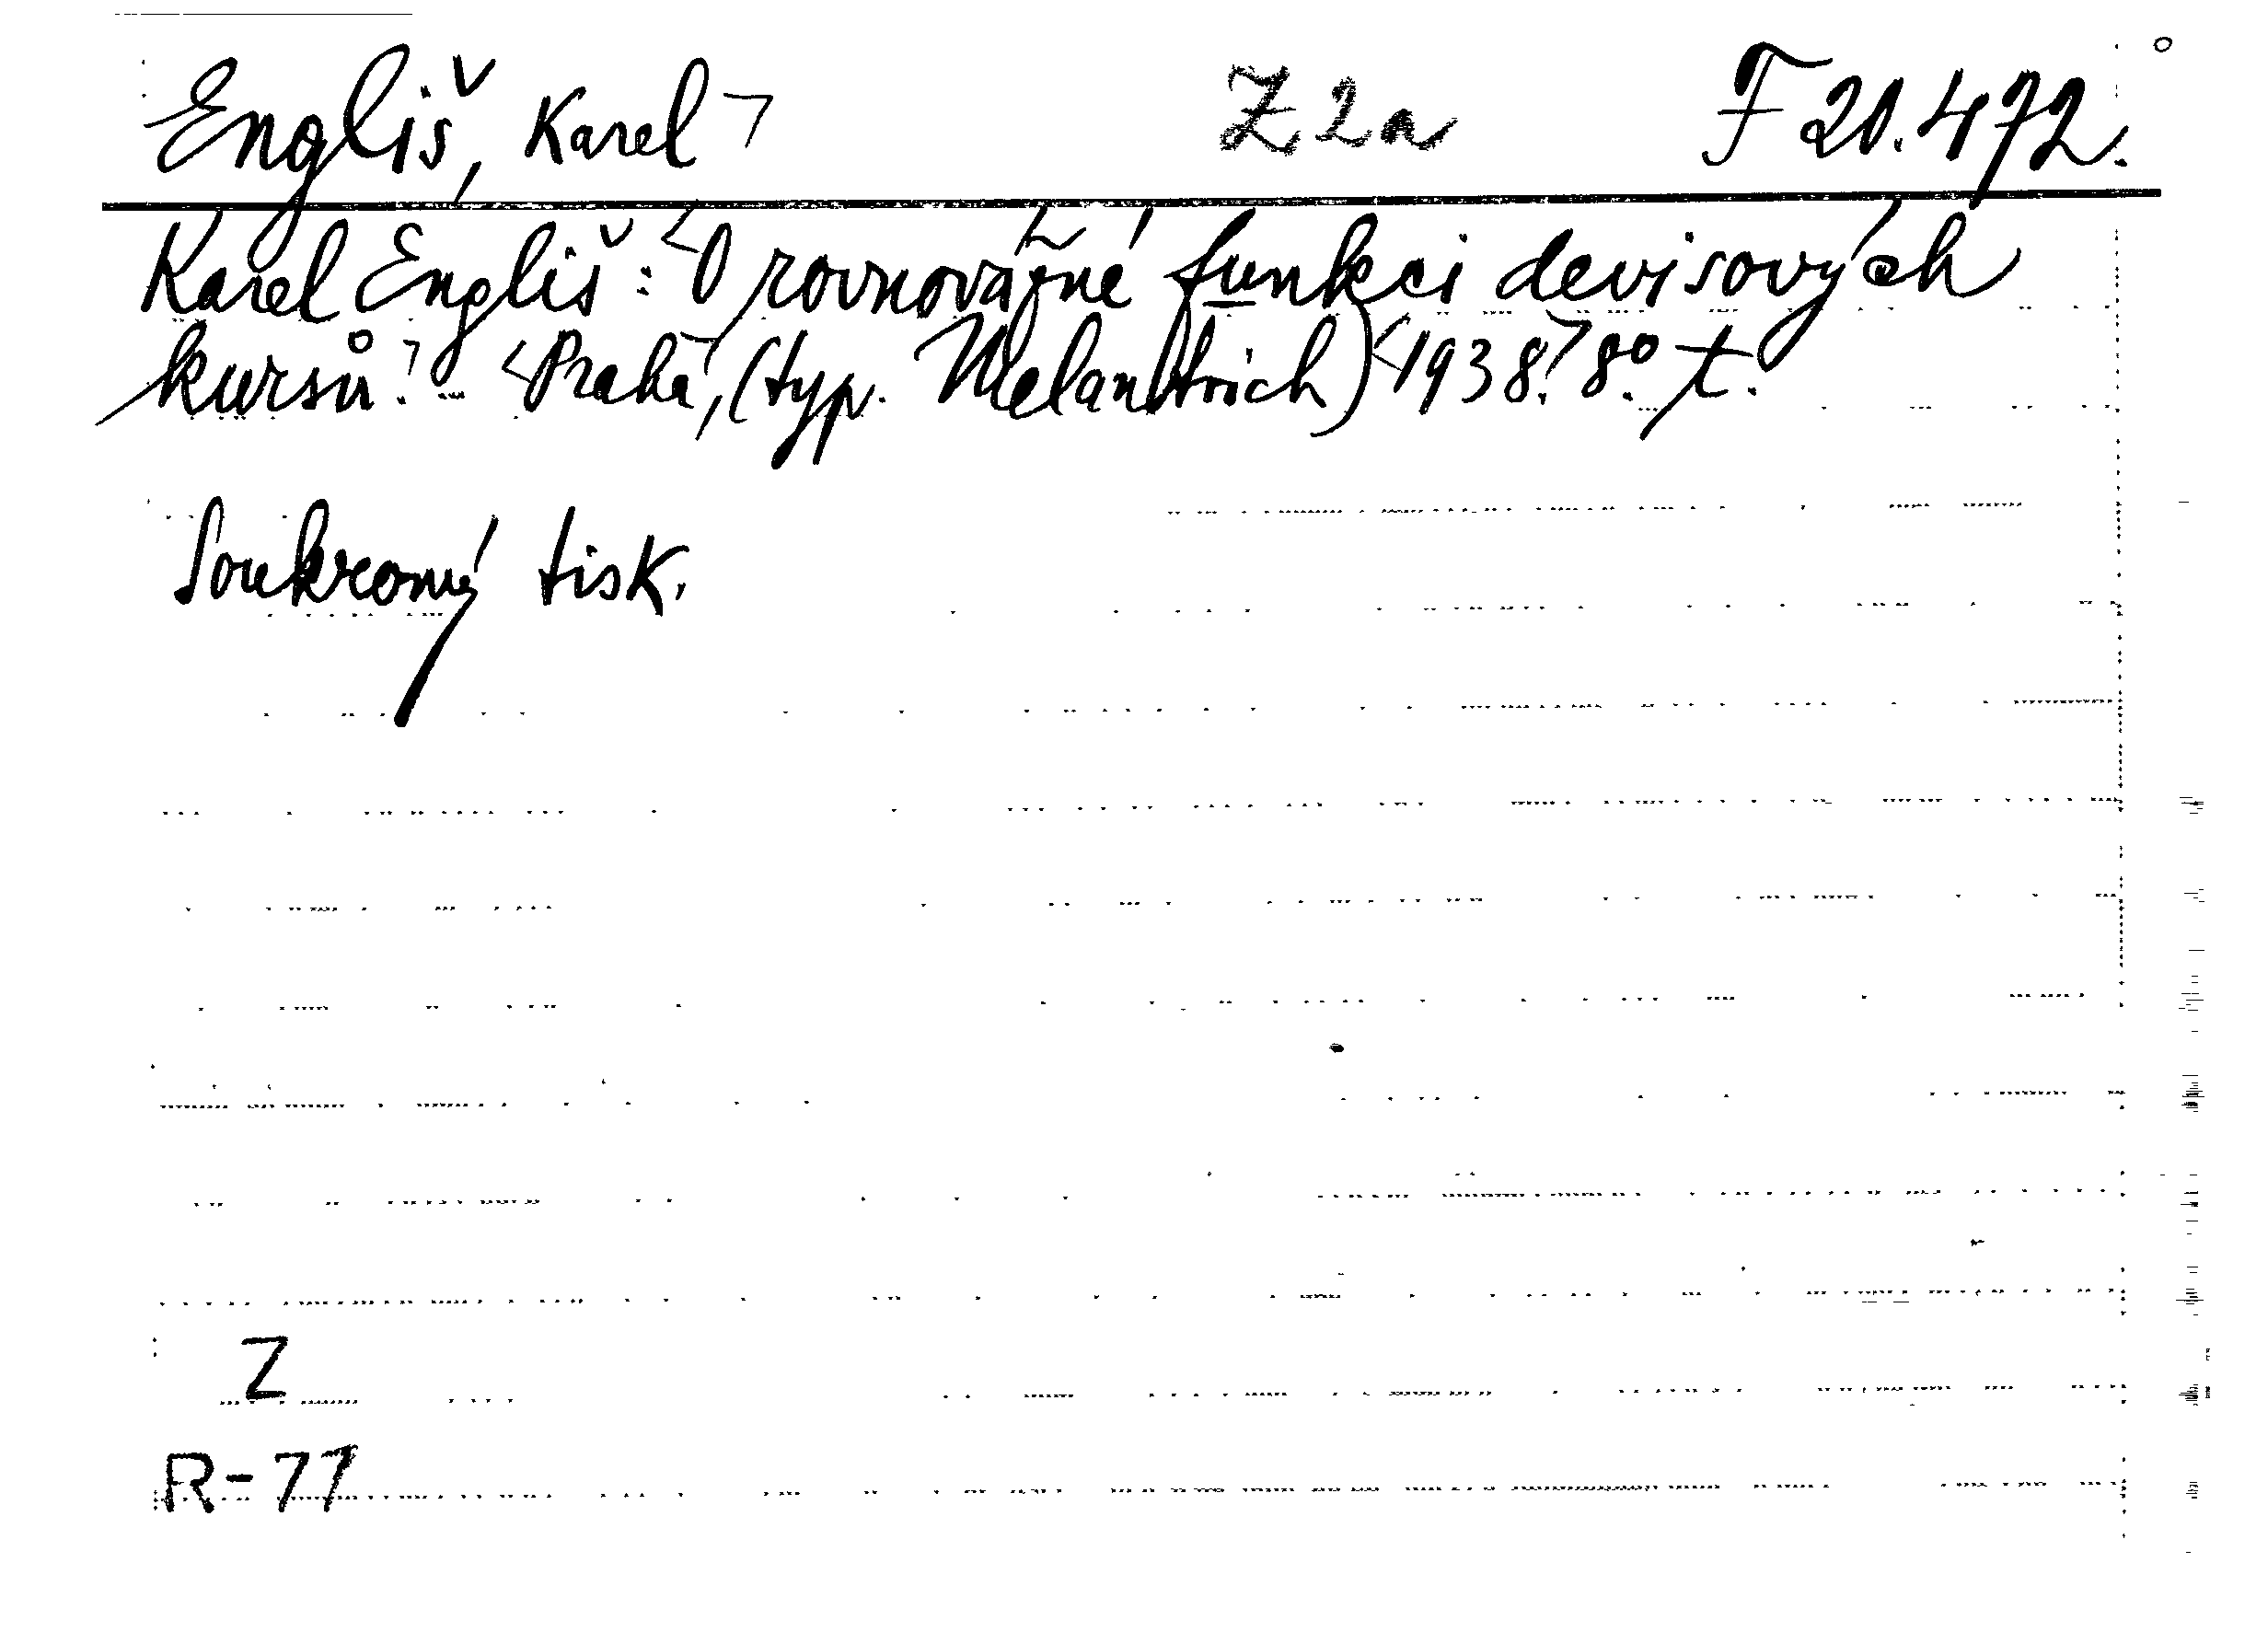 Engliš, Karel Z 2a F 20.472.
Karel Engliš: O rovnovážné funkci devisových
kursů. - Praha, (typ. Melantrich) 1938. 8°. t.
Soukromý tisk.
Z
R-77